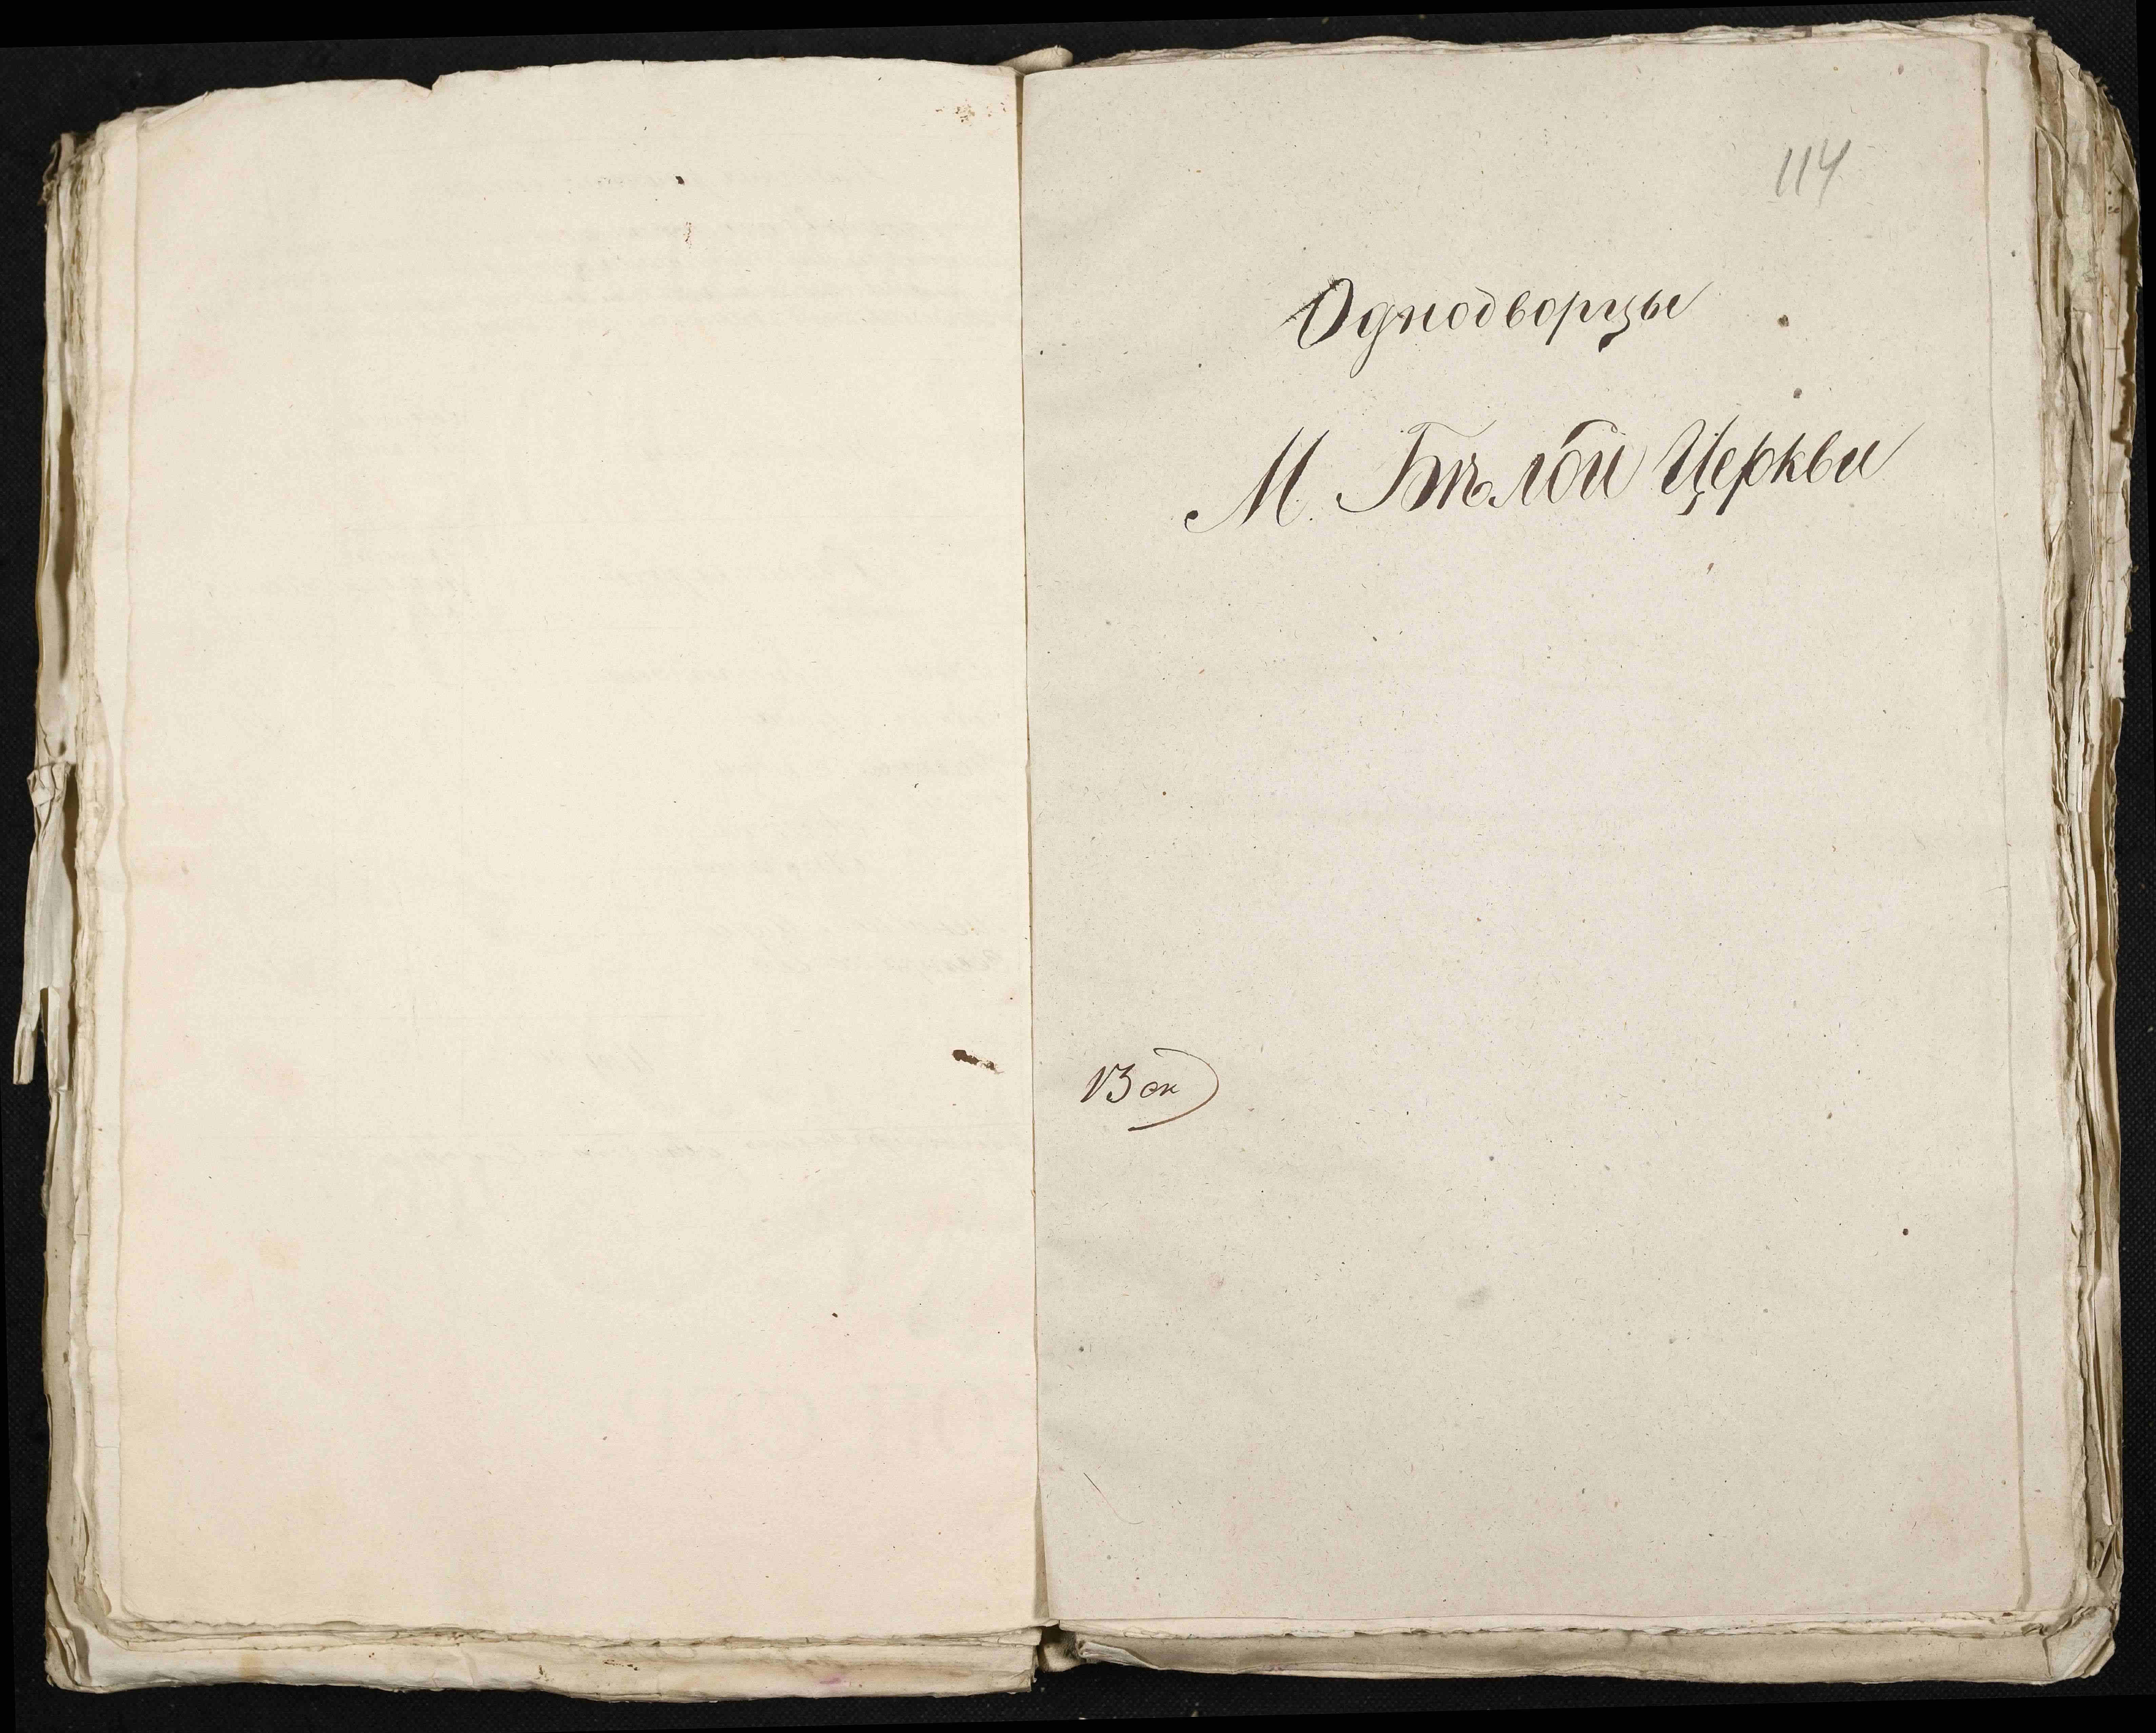 114
Однодворцы
М. Бѣлой Церкви